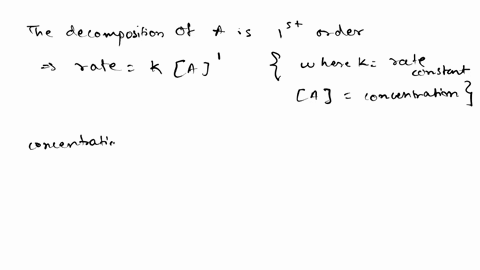 The decomposition of A is 1st order
⇒ rate = K [A]¹ { where K = rate constant
[A] = concentration }
concentratio